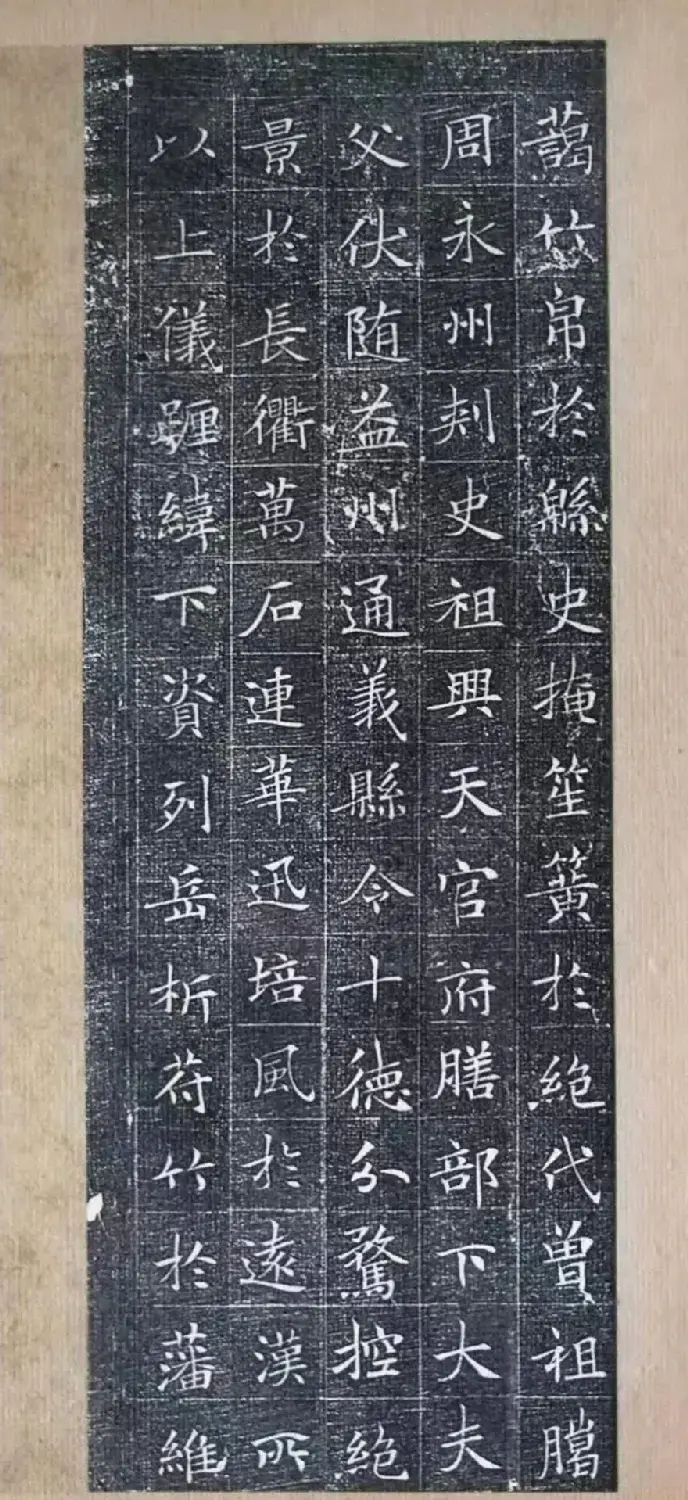 藹竹帛於緜史掩笙簧於絶代曽祖騰
周永州刾史祖興天官府膳部下大夫
父伏随益州通義縣令十徳分騖控絶
景於長衢萬石連華迅培風於遠漢所
以上儀躔緯下資列岳析苻竹於藩維